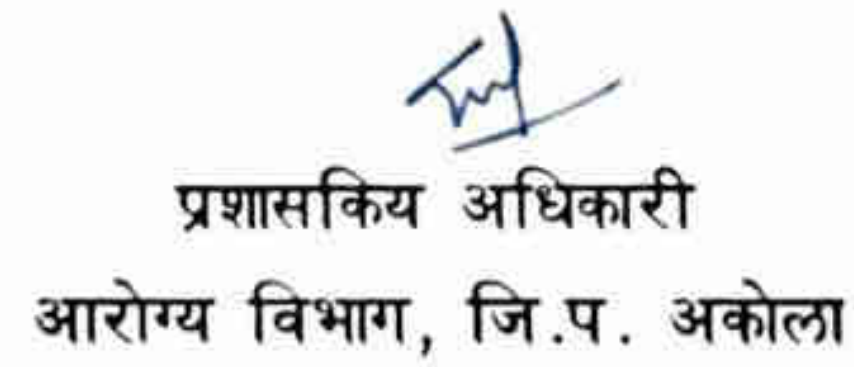 प्रशासकिय अधिकारी
आरोग्य विभाग, जि.प. अकोला